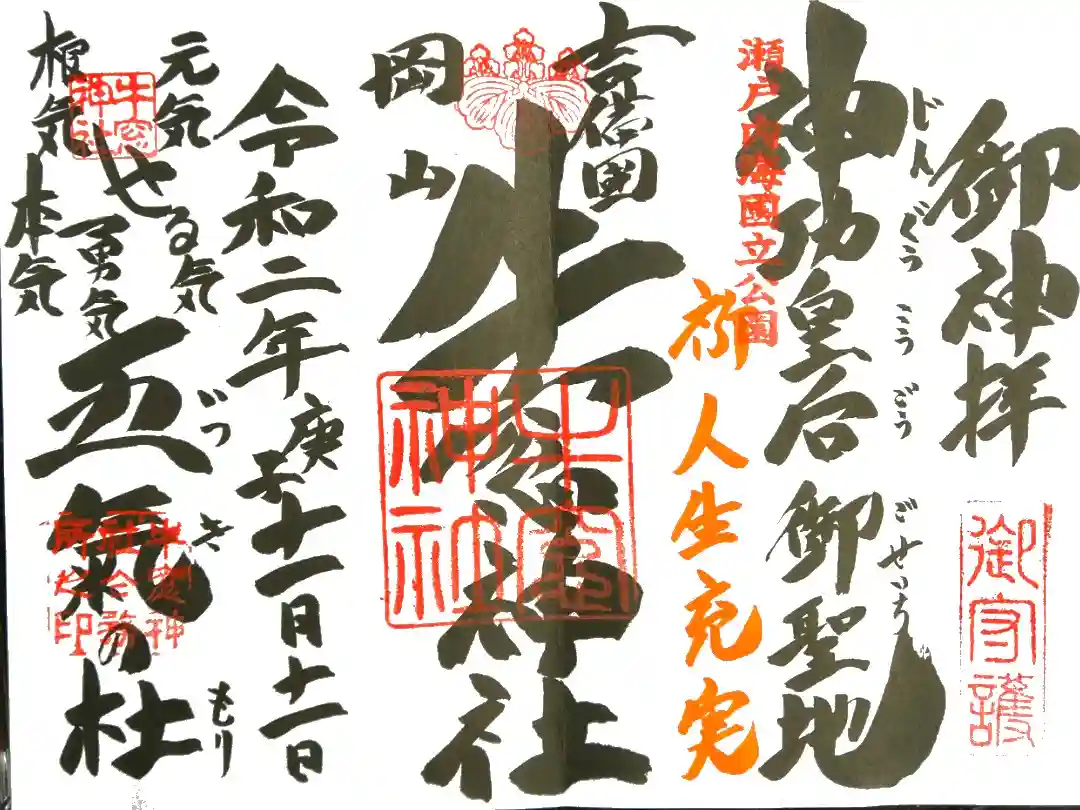 御神拝
御守護
神功皇后御聖地
じんぐうこうごう
ごせいち
瀬戸内海國立公園
祈人生充実
吉備国
岡山
牛窓神社
牛窓神社
令和二年庚子十一月十一日
元気
やる気
勇気
根気
本気
牛窓神社
五氣の杜
いつき
もり
牛窓神社社務所之印